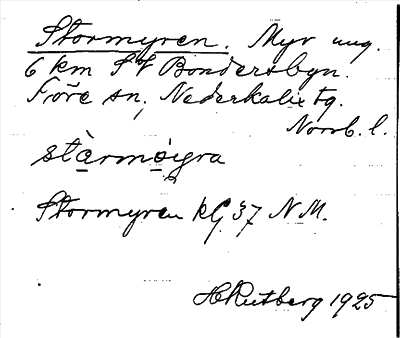 Stormyren. Myr ung.
6 km SV Bondersbyn.
Töre sn, Nederkalix tg.
Norrb. l.
stàrmøyra
Stormyren kG 37 N.M.
H Rutberg 1925